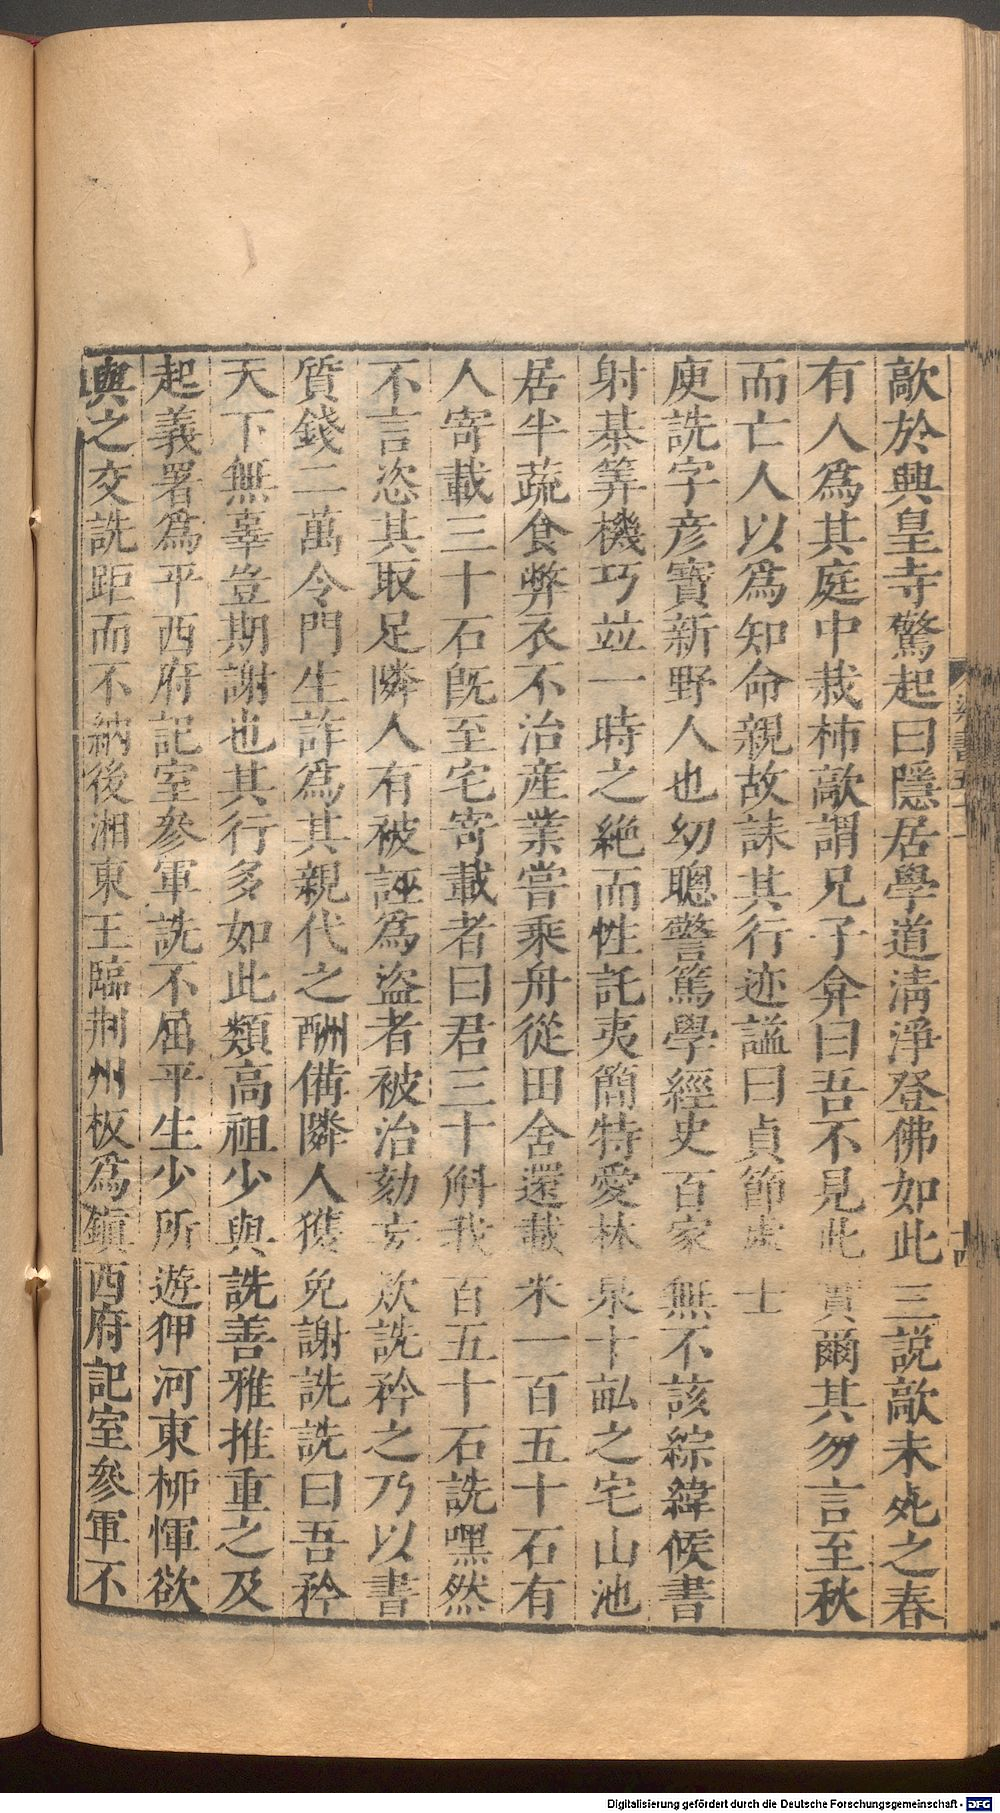 歊於興皇寺驚起曰隱居學道清淨登佛如此三說歊未死之春
有人爲其庭中栽柿歊謂兄子弇曰吾不見此實爾其勿言至秋
而亡人以爲知命親故誄其行迹謚曰貞節處士
庾詵字彦寶新野人也幼聰警篤學經史百家無不該綜緯候書
射棊筭機巧竝一時之絶而性託夷簡特愛林泉十畝之宅山池
居半蔬食弊衣不治産業嘗乘舟從田舍還載米一百五十石有
人寄載三十石旣至宅寄載者曰君三十斛我百五十石詵嘿然
不言恣其取足隣人有被誣爲盜者被治劾妄欵詵矜之乃以書
質錢二萬令門生詐爲其親代之酬備隣人獲免謝詵詵曰吾矜
天下無辜豈期謝也其行多如此類高祖少與詵善雅推重之及
起義署爲平西府記室參軍詵不屈平生少所遊狎河東柳惲欲
與之交詵距而不納後湘東王臨荆州板爲鎭西府記室參軍不
梁書五十一
十四
Digitalisierung gefördert durch die Deutsche Forschungsgemeinschaft - DFG